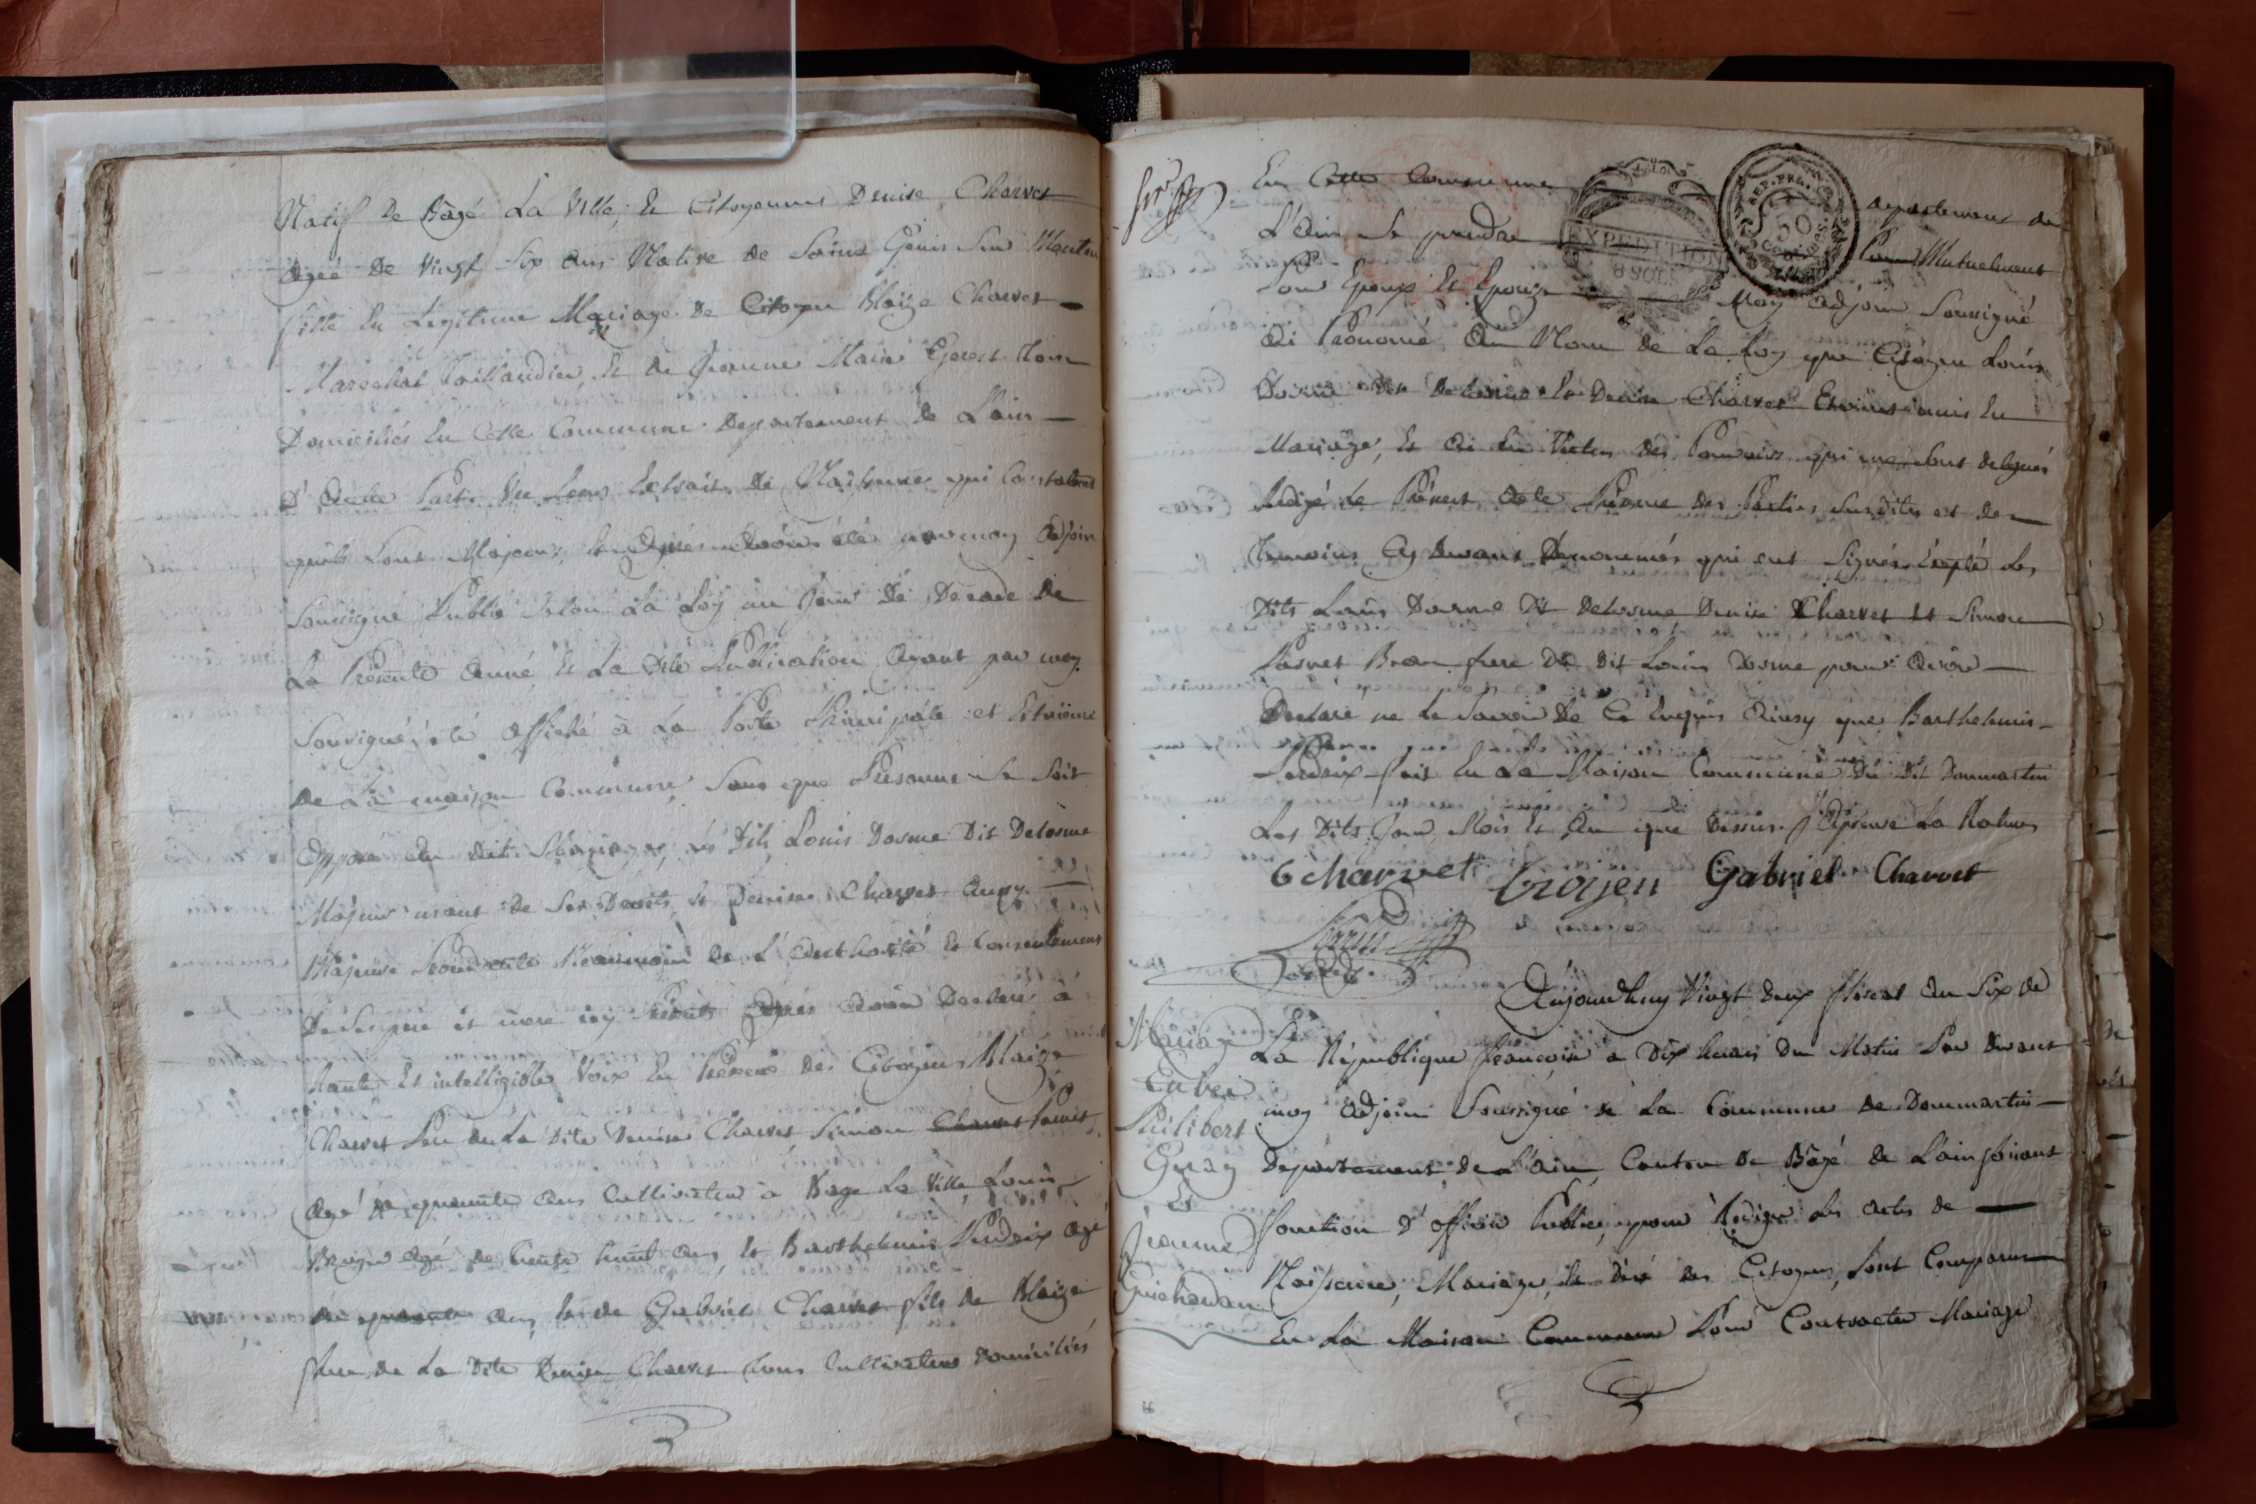 Natif de Bagé La Ville, Et Citoyenne Denise Charvet
agée de vingt Six ans Native de Saint Genis Sur Menton
fille En Legitime Mariage de Citoyen Blaize Charvet
Marechal Taillandier, Et de Jeanne Marie
Domiciliés En Cette Commune Departement de L'ain
D'autre Part. Vu Leurs Extraits de Naissance qui Constatent
qu'ils Sont Majeurs, par moy Adjoint
Soussigné Publié Selon La Loy un Jour de Decade de
La Presente année Et La dite Publication ayant par moy
Soussigné été affiché à La Porte Principale et
de La maison Commune Sans que Personne Se Soit
opposé au dit Mariage, Les Dits Louis Dosme Dit Delosme
Majeur usant de Ses Droits Et Denise Charvet aussy
Majeure de L'authorité Et Consentement
De Ses pere et mere icy Présents Après avoir Declaré à
haute Et intelligible Voix En Présence des Citoyens Blaize
Charvet Pere de La Dite Denise Charvet Simon Charvet Pauvet
agé de quarante ans Cultivateur à Bage La Ville, Louis
agé de trente huit ans, Et Barthelemis Perdrix agé
de quarante ans, Et de Gabriel Charvet fils de Blaize
frere de La Dite Denise Charvet tous Cultivateurs Domiciliés
En Cette Commune departement de
L'Ain Se prendre Mutuellement
EXPEDITION
8 SOLS
REP. FRA.
50
Centimes
Pour Epoux Et Epouze Moy adjoint Soussigné
ai Prononcé au Nom de La Loy que Citoyen Louis
Dosme dit Delosme Et Denise Charvet Etoient unis En
Mariage, Et ai En Vertu des Pouvoirs qui me Sont delegués
Redigé Le Présent acte Présence des Parties Susdites et des
Temoins Cy devant Denommés qui ont Signés Excepté Les
Dits Louis Dosme Dit Delosme Denise Charvet Et Simon
Pauvet Beau frere Du Dit Louis Dosme pour avoir
Declaré ne Le Savoir De Ce Enquis Ainsy que Barthelemis
Perdrix fait En La Maison Commune Du Dit Dommartin
Les Dits Jour Mois Et An que Dessus.
Gcharvet Broyen Gabriel Charvet
Mariage
Entre
Philibert
Guay
Et
Jeanne
Guichardan
Aujourdhuy Vingt deux floreal an Six de
La Republique françoise a Dix heures Du Matin Par devant
moy adjoint Soussigné de La Commune de Dommartin
Departement de L'ain, Canton de Bagé de L'ain faisant
fonction D'officier Public, pour Rediger Les actes de
Naissance, Mariage, Et Décé des Citoyens, Sont Comparus
En La Maison Commune Pour Contracter Mariage